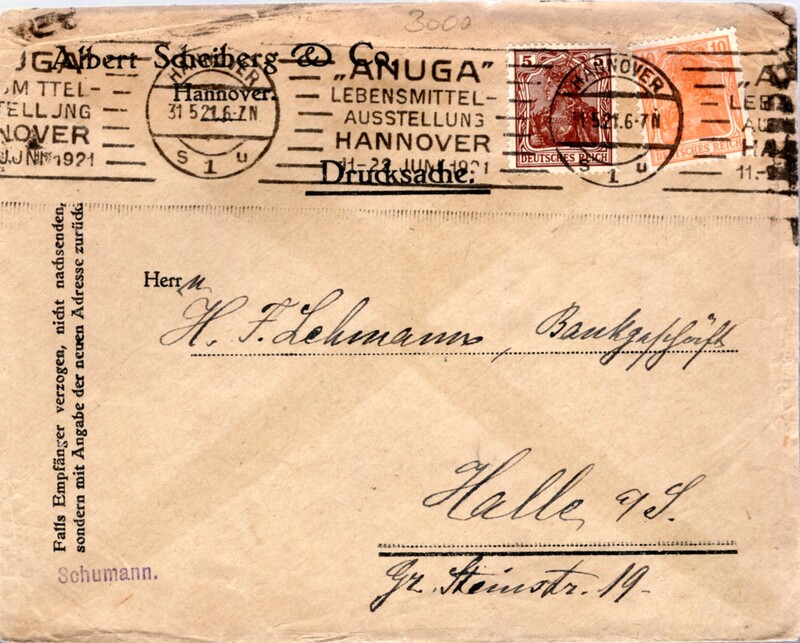 3000
Albert Scheiberg & Co.
Hannover.
HANNOVER
31.5.21.6-7N
s 1 u
"ANUGA"
LEBENSMITTEL-
AUSSTELLUNG
HANNOVER
11.-22. JUNI 1921
5
DEUTSCHES REICH
10
DEUTSCHES REICH
HANNOVER
31.5.21.6-7N
s 1 u
Drucksache.
Falls Empfänger verzogen, nicht nachsenden,
sondern mit Angabe der neuen Adresse zurück
Herrn
H. F. Lehmann, Bankgeschäft
Halle a/S.
Gr. Steinstr. 19.
Schumann.